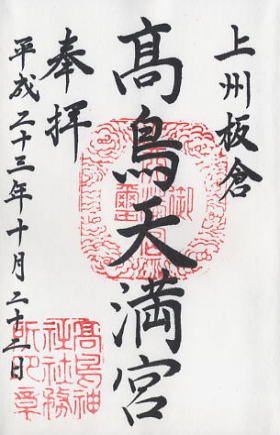 上州板倉
髙鳥天満宮
奉拝
平成二十三年十月二十二日
髙鳥神
社社務
所印章